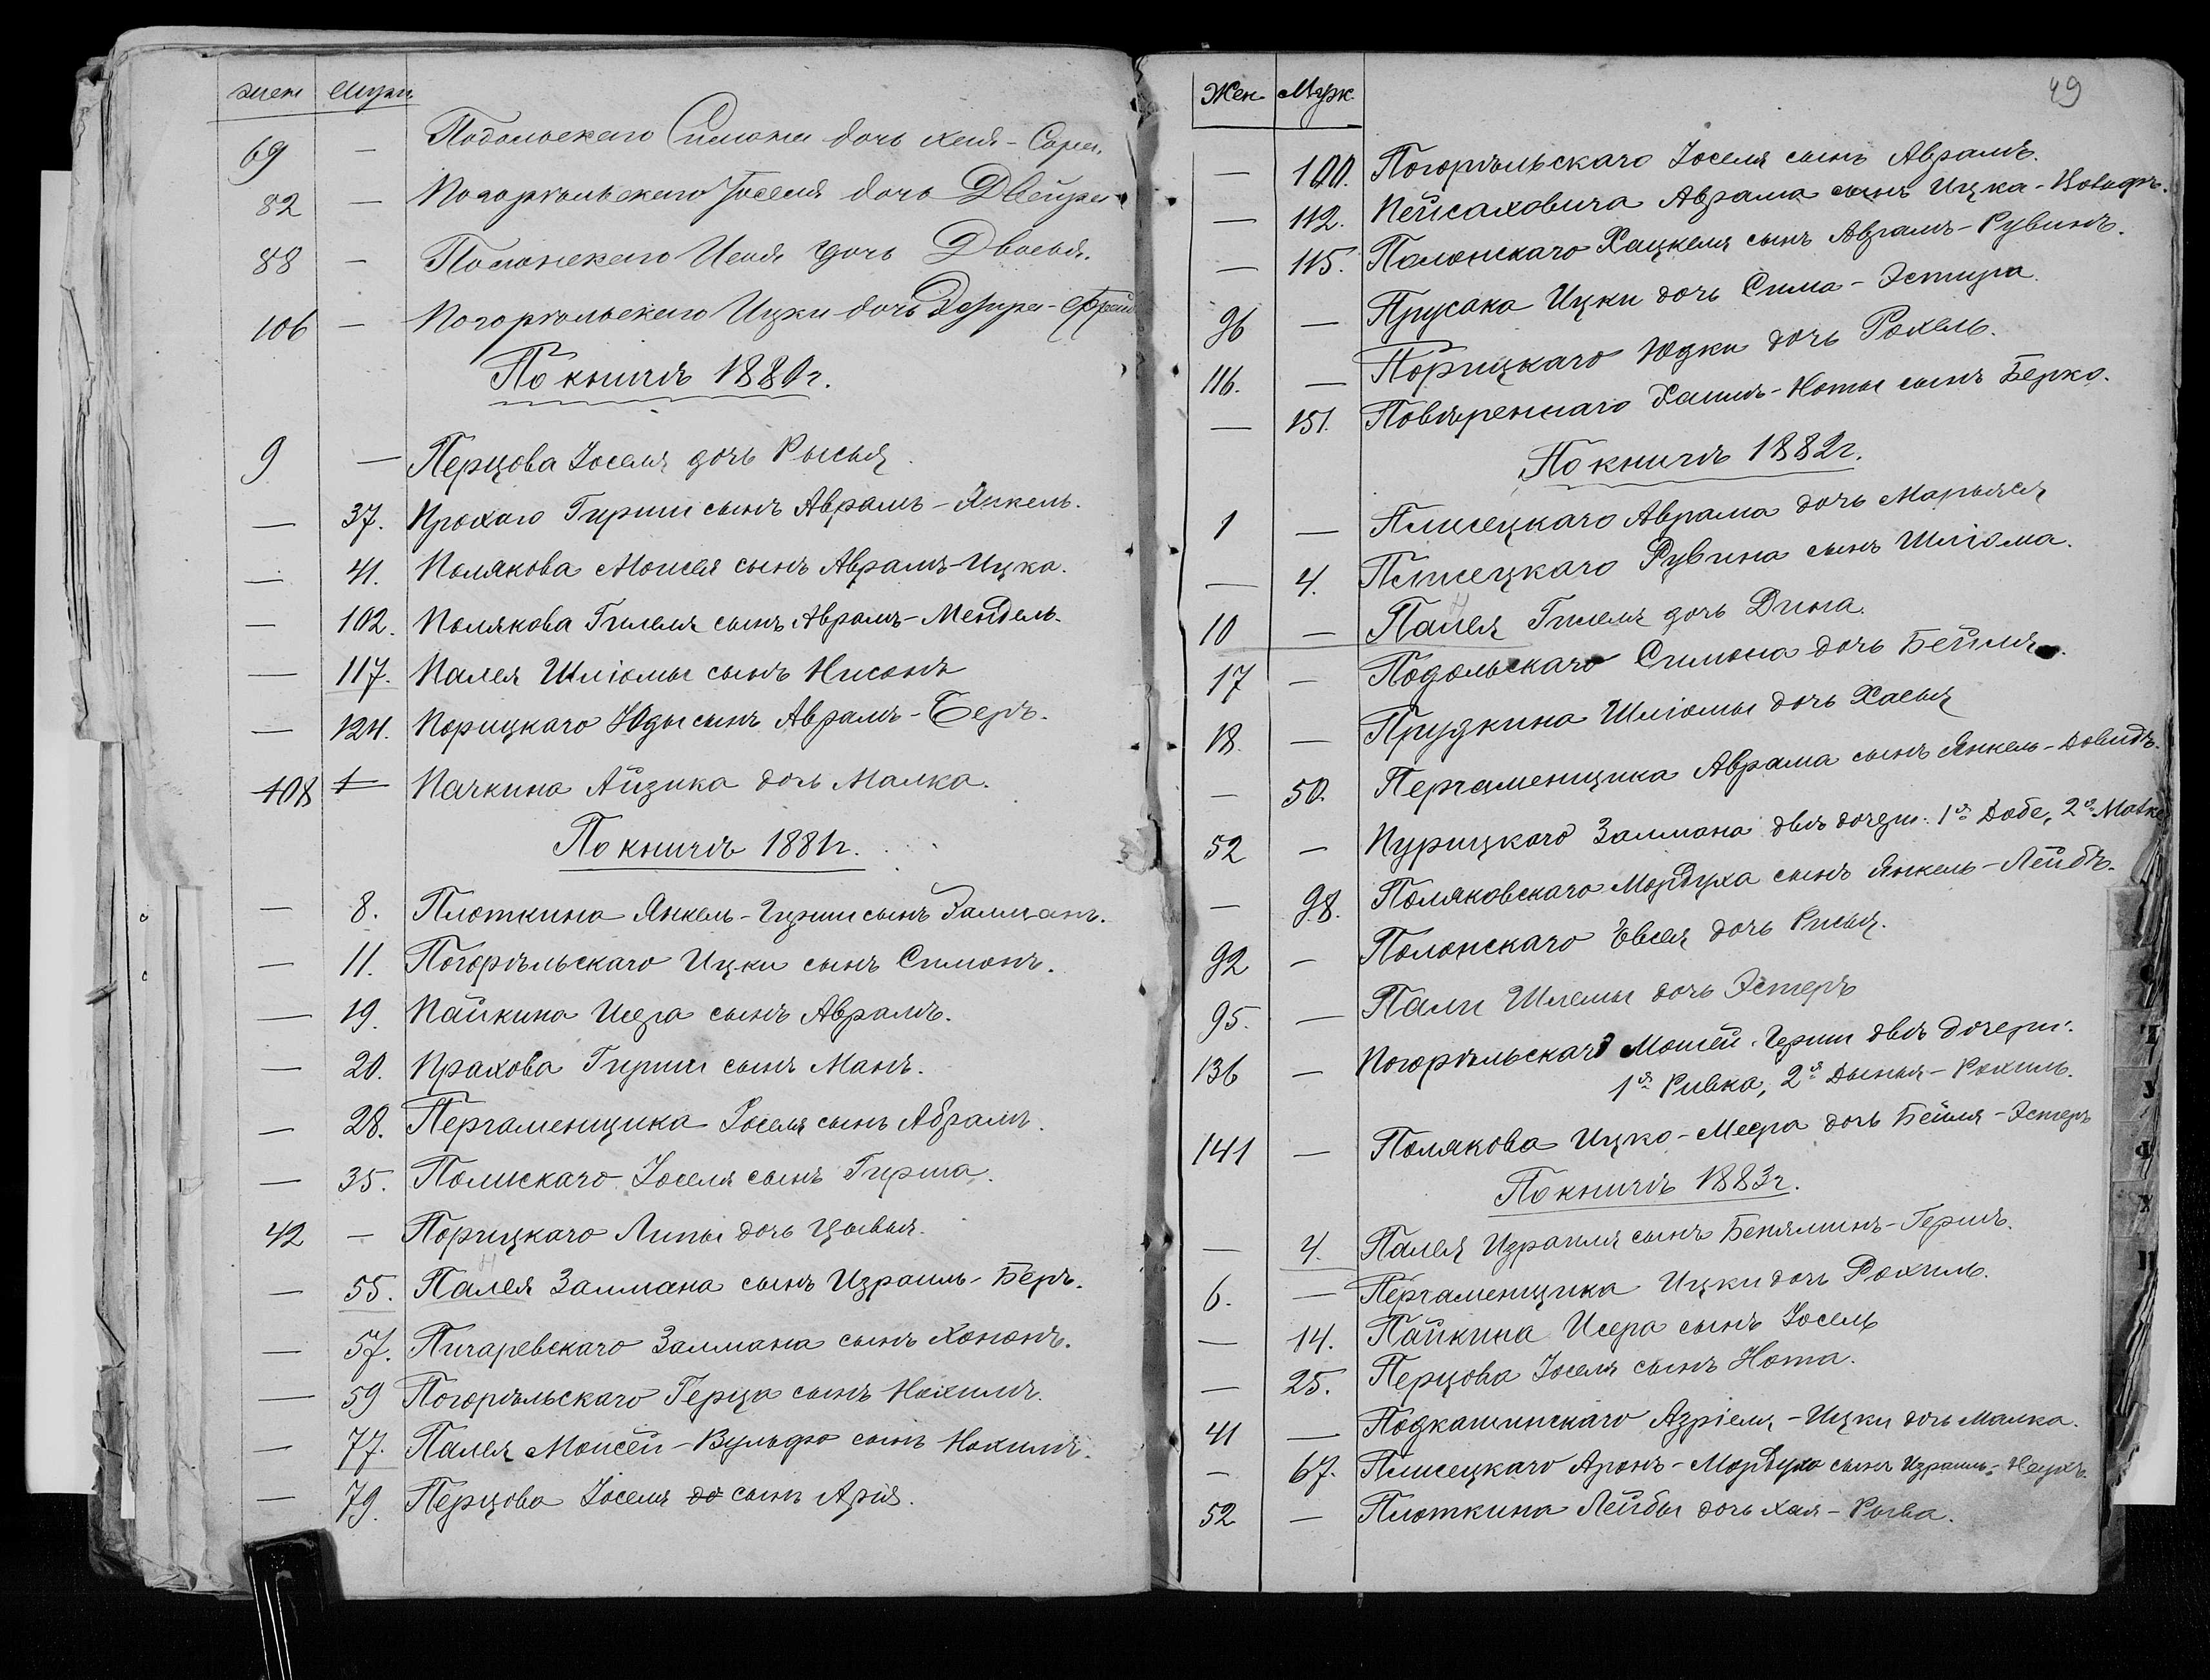 жен Мужч
69 — Подольскаго Симона дочь Хая-Сора.
82 — Погорѣльскаго Іоселя дочь Двейра
88 — Полонскаго Исая дочь Двосья.
106 — Погорѣльскаго Ицки дочь Двейра-Фрейд
По книгѣ 1880 г.
9 — Перцова Іоселя дочь Рысья.
— 37. Прохаго Гирши сынъ Абрамъ-Янкель.
— 41. Полякова Мовшея сынъ Абрамъ-Ицка.
— 102. Полякова Гилеля сынъ Абрамъ-Мендель.
— 117. Палея Шліомы сынъ Нисонъ
— 124. Порицкаго Юды сынъ Абрамъ-Беръ.
108 — Пачкина Айзика дочь Малка.
По книгѣ 1881 г.
— 8. Плоткина Янкель-Гирши сынъ Залманъ.
— 11. Погорѣльскаго Ицки сынъ Симонъ.
— 19. Пайкина Исера сынъ Абрамъ.
— 20. Прахова Гирши сынъ Манъ.
— 28. Пергаменщика Іоселя сынъ Абрамъ.
— 35. Полискаго Іоселя сынъ Гирша.
42 — Порицкаго Липы дочь Цывья.
— 55. Палея Залмана сынъ Израиль-Беръ.
— 57. Пигаревскаго Залмана сынъ Хононъ.
— 59 Погорѣльскаго Герца сынъ Нохимъ.
— 77. Палея Моисей-Вульфа сынъ Нохимъ.
— 79. Перцова Іоселя до сынъ Арія.
49
Жен Муж.
— 100. Погорѣльскаго Іоселя сынъ Абрамъ.
— 112. Пейсаховича Абрама сынъ Ицка-
— 115. Полонскаго Хацкеля сынъ Абрамъ-Рувинъ.
96 — Прусака Ицки дочь Сима-Эстира.
116. — Порицкаго Юдки дочь Рохель.
— 151. Повѣреннаго Хаимъ-Ноты сынъ Берко.
По книгѣ 1882 г.
1 — Плисецкаго Абрама дочь Марьяся
— 4. Плисецкаго Рувина сынъ Шліома.
10 — Палея Гилеля дочь Дина.
17 — Подольскаго Симона дочь Бейля.
18. — Прудкина Шліомы дочь Хасья
— 50. Пергаменщика Абрама сынъ Янкель-Довидъ.
52 — Пурицкаго Залмана двѣ дочери: 1я Добе, 2я Матке
— 98. Поляковскаго Мордуха сынъ Янкель-Лейбъ.
92 — Полонскаго Евсея дочь Рисья.
95. — Пали Шлемы дочь Эстеръ
136 — Погорѣльскаго Мошей-Герши двѣ дочери:
1я Ривка, 2я Дынья-Рохиль.
141 — Полякова Ицко-Меера дочь Бейля-Эстеръ
По книгѣ 1883 г.
— 4. Палея Израиля сынъ Беняминъ-Гершъ.
6. — Пергаменщика Ицки дочь Рохиль.
— 14. Пайкина Исера сынъ Іосель
— 25. Перцова Іоселя сынъ Нота.
41 — Подкашинскаго Азріеля-Ицки дочь Малка.
— 67. Плисецкаго Аронъ-Мордуха сынъ Израиль-
52 — Плоткина Лейбы дочь Хая-Рыва.